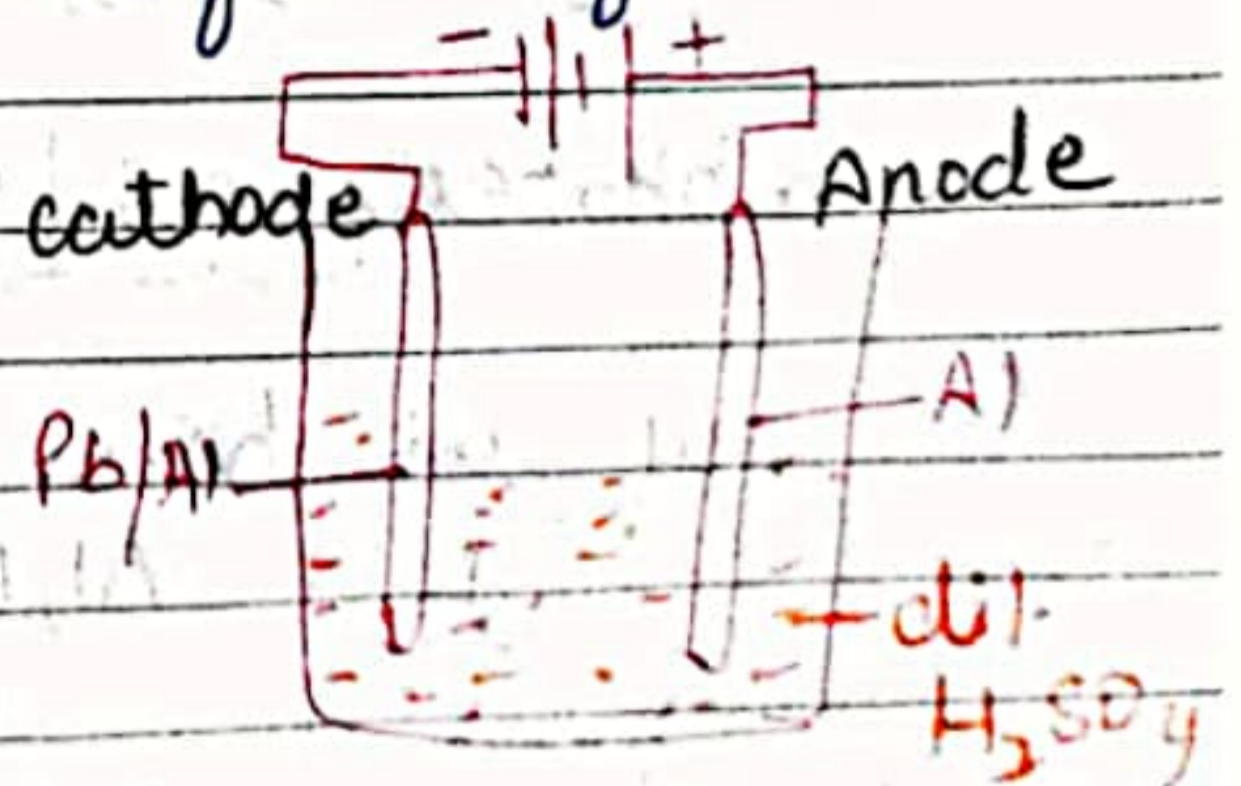 - +
cathode Anode
Al
Pb/Al
dil.
H₂SO₄